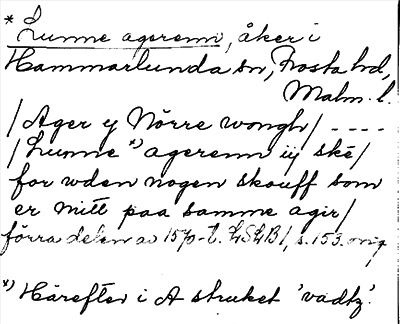 * Lunne agerenn, åker i
Hammarlunda sn, Frosta hd,
Malm. l.
/Ager y Nörre wongh/ ----
/Lunne *) agerenn iij skė/
for wden nogen skouff som
er mitt paa samme agir/
förra delen av 1570-t. LSLB1, s. 153. orig
*) Härefter i A struket 'vadtz'.